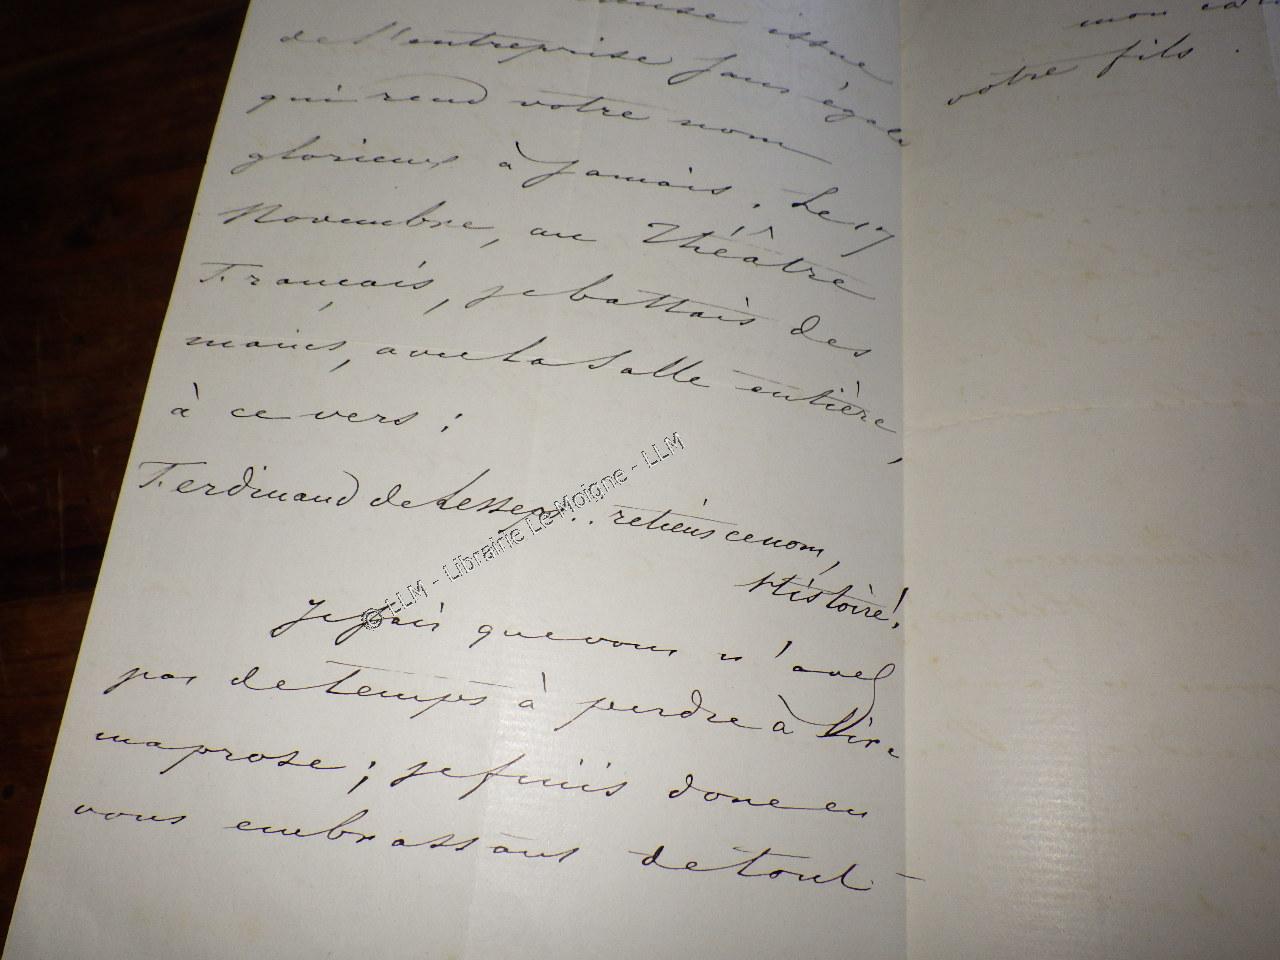 issue
de l'entreprise sans égale
qui rend votre nom
glorieux à jamais. Le 17
Novembre, au Théâtre
Français, je battais des
mains, avec la Salle entière,
à ce vers :
Ferdinand de Lesseps.. retiens ce nom,
Histoire!
Je sais que vous n'avez
pas de temps à perdre à lire
ma prose ; je finis donc en
vous embrassant de tout
mon
votre fils.
© LLM - Librairie Le Moigne - LLM